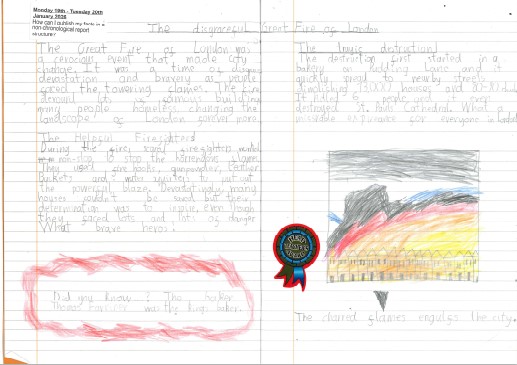 Monday 19th - Tuesday 20th
January 2026
How can I publish my facts in a
non-chronological report
structure?
The disgraceful Great Fire of London
The Great Fire of London was
a ferocious event that made city
change. It was a time of
devastation and bravery as people
faced the towering flames. The fire
many people homeless changing the
landscape of London forever more.
The Helpful Firefighters
During the fire, firefighters
non-stop to stop the horrendous
They used fire hooks, gunpowder, leather
buckets and water to put out
the powerful blaze. Devastatingly, many
houses couldn't be saved but their
determination was to inspire, even though
they faced lots and lots of danger.
What brave heros!
Did you know? The baker
Thomas Farriner was the kings baker.
The destruction!
The destruction first started in a
bakery on Pudding Lane and it
quickly spread to nearby streets
13,000 houses and
It killed 6 people and it even
destroyed St. Pauls Cathedral. What a
for everyone in London
The charred flames engulfs the city.